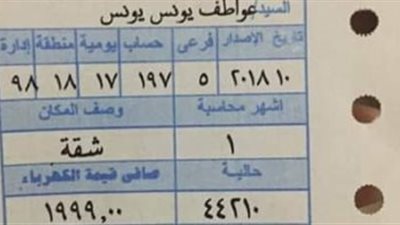 السيد/ عواطف يونس يونس
تاريخ الإصدار فرعى حساب يومية منطقة إدارة
١٠ ٢٠١٨ ٥ ١٩٧ ١٧ ١٨ ٩٨
اشهر محاسبة وصف المكان
١ شقة
حالية صافى قيمة الكهرباء
٤٤٢١٠ ١٩٩٩,٠٠